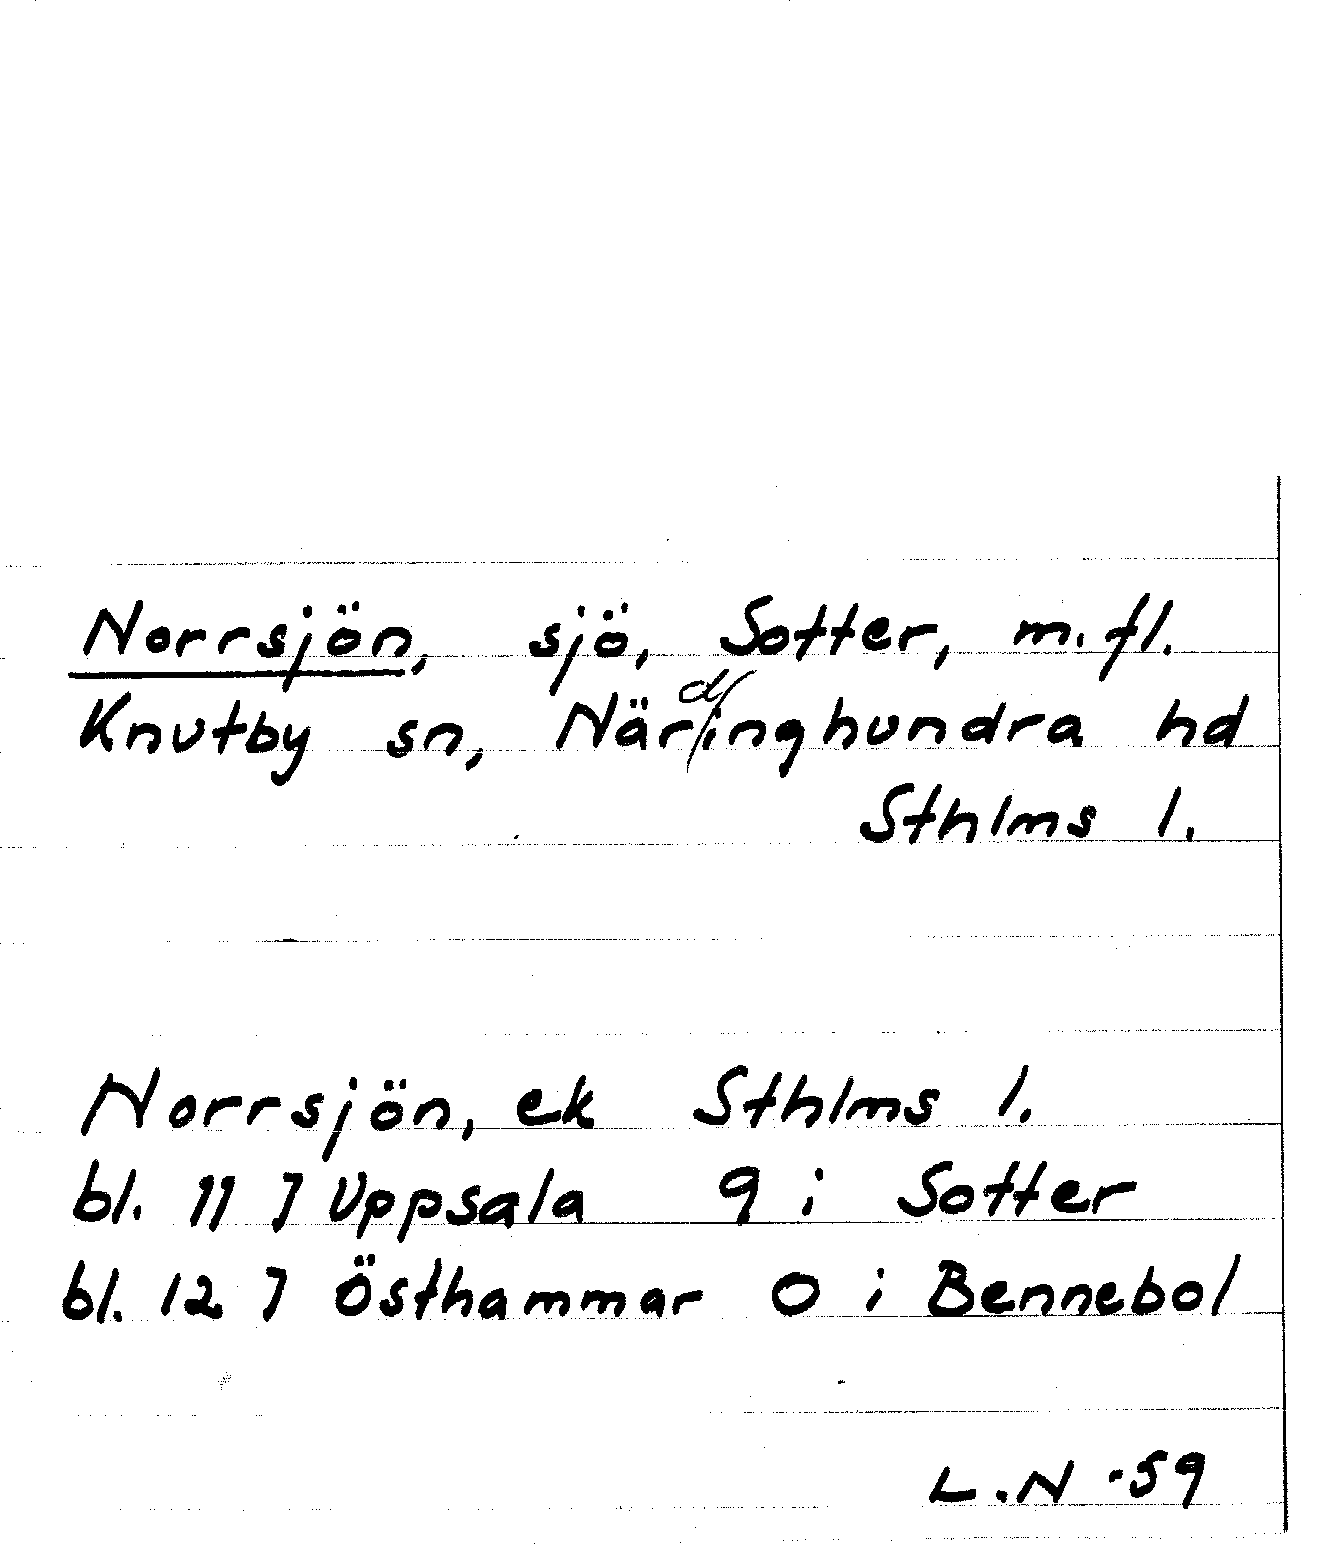 Norrsjön, sjö, Sotter, m.fl.
Knutby sn, Närdinghundra hd
Sthlms l.
Norrsjön, ek Sthlms l.
bl. 11 J Uppsala 9 i Sotter
bl. 12 J Östhammar O i Bennebol
L.N -59